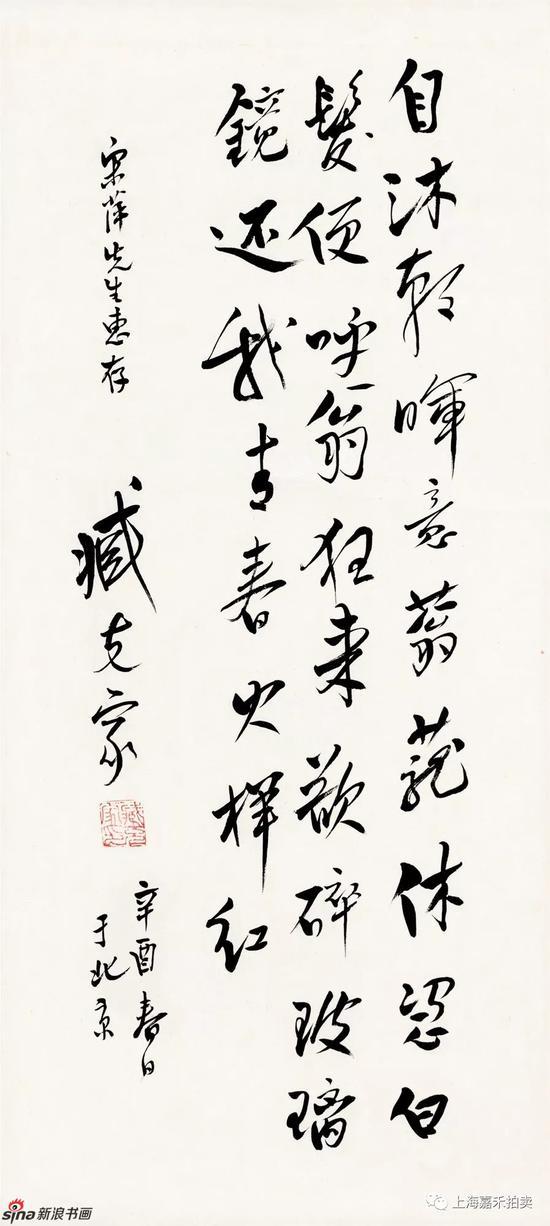 自沐朝暉意蓊蘢休憑白
髮便呼翁狂来欲碎玻璃
鏡还我青春火样红
萍先生惠存
臧克家
辛酉春日
于北京
sina新浪书画
上海嘉禾拍卖